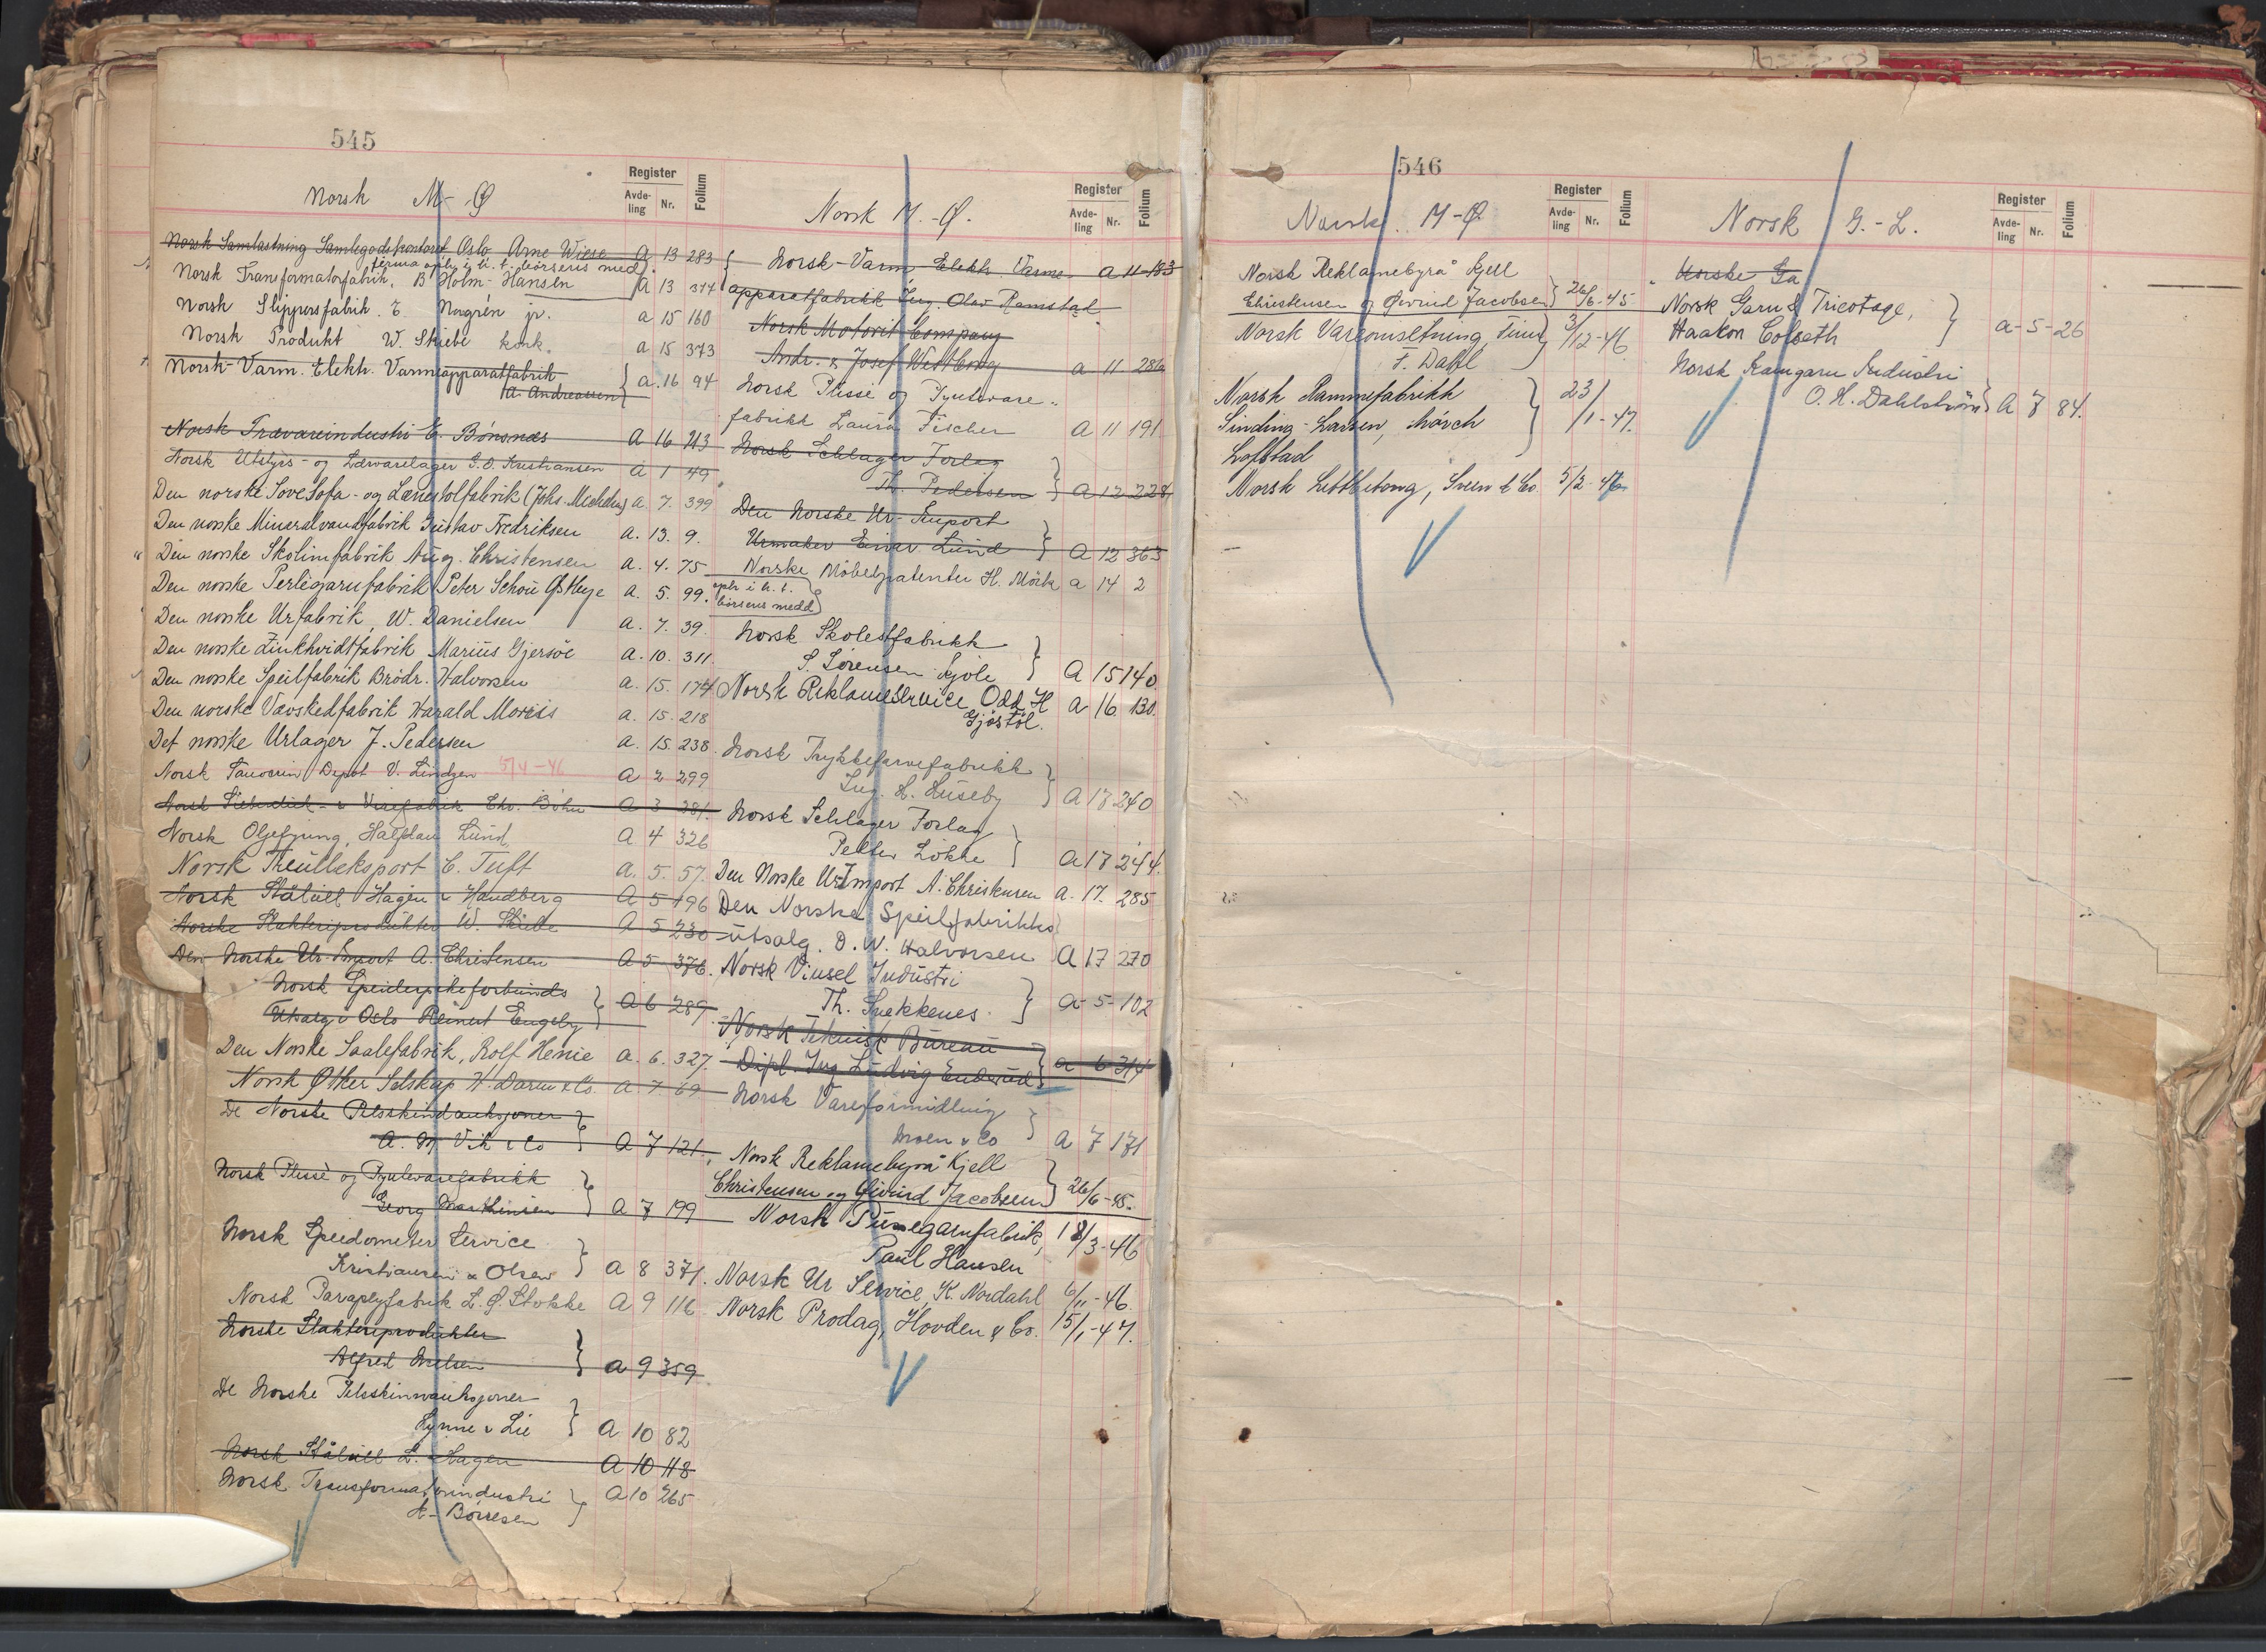 545
Norsk M-Ø
Register
Avde-
ling
Nr.
Folium
Norsk Samlastning Samlegodskontoret Oslo Arne Wiese A 13 283
firma opl. i h. t. börsens med.
Norsk Transformatorfabrik, B Holm-Hansen A 13 374
Norsk Slippersfabrik. E. Norgrén jr. A 15 160
Norsk Produkt W. Skiebe konk. A 15 373
Norsk-Varm. Elektr. Varmeapparatfabrik
A. Andreassen A. 16 94
Norsk Trævareindustri E. Bónsnæs A 16 213
Norsk Utstyrs- og Lærvarelager S.O. Kristiansen A 1 49
Den norske Sove Sofa- og Lænestolfabrik (Johs. Michelsen) A. 7. 399
Den norske Mineralvandfabrik Gustav Fredriksen A. 13. 9.
Den norske Skolimfabrik Aug. Christensen A. 4. 75
Den norske Perlegarnfabrik Peter Schou Østbye A. 5. 99.
Den norske Urfabrik, W. Danielsen A. 7. 39.
Den norske Zinkhvidtfabrik Marius Gjersöe A. 10. 311.
Den norske Speilfabrik Brödr. Halvorsen A. 15. 174
Den norske Vævskedfabrik Harald Moriis A. 15. 218
Det norske Urlager J. Pedersen A. 15. 238.
Norsk Depot V. Lindgen 5/4-46 A 2 299
Norsk Virefabrik Chr. Bóhn A 3 281.
Norsk Oljefyring, Halfdan Lund, A 4 326
Norsk Treulleksport C. Tuft A. 5. 57.
Norsk Stålull Hagen & Handberg A 5 196
Norske Slakteriprodukter W. Skiebe A 5 230
Den Norske Ur-Import A. Christensen A 5 376.
Norsk Speiderpikeforbunds
Utsalg i Oslo Reinert Engeby A 6 289.
Den Norske Saalefabrik, Rolf Henie A. 6. 327.
Norsk Øtker Selskap W. Darm & Co. A. 7. 69
De Norske Pelsskindauksjoner
A. M. Vik & Co A 7 121.
Norsk Plissé og Pyntevarefabrikk
Georg Marthinsen A 7 199
Norsk Speedometer Service
Kristiansen & Olsen A 8 371.
Norsk Paraplyfabrik L. Ø. Stokke A 9 116
Norske Slakteriprodukter
Alfred Nielsen A 9 359
De Norske Pelsskinnauksjoner
Lynne & Lie A 10 82
Norsk Stålull L. Hagen A 10 118
Norsk Transformatorindustri
H. Börresen A 10 265
Norsk M.-Ø.
Register
Avde-
ling
Nr.
Folium
Norsk-Varm, Elektr. Varme- A 11-183
apparatfabrikk Ing. Olav Ramstad
Norsk Motorit Company
Andr. & Josef Westberg A 11 286
Norsk Plissé og Pyntevare-
fabrikk Laura Fischer A 11 191
Norsk Schlager Forlag
Th. Pedersen A 12 228
Den Norske Ur-Import
Urmaker Einar Lund A 12 363
Norske Möbelpatenter H. Mörk A 14 2
opl. i h. t.
börsens medd
Norsk Skolestfabrikk
S. Sörensen Kjole A 15 140
Norsk Reklameservice Odd H A 16. 130.
Gjöstöl.
Norsk Trykkefarvefabrikk
Ing. H. Huseby A 17 240
Norsk Schlager Forlag
Petter Lökke A 17 244.
Den Norske Ur Import A. Christensen A. 17. 285
Den Norske Speilfabrikks
utsalg. D. W. Halvorsen A 17 270
Norsk Vinsel Industri
Th. Snekkenes A-5-102
Norsk Teknisk Bureau
Dipl. Ing Ludvig Enderud A 6 314
Norsk Vareformidling
Moen & Co A 7 171
Norsk Reklamebyrå Kjell
Christensen og Øivind Jacobsen 26/6-45.
Norsk Pusegarnfabrik, 18/3-46
Paul Hansen
Norsk Ur Service, K. Nordahl 6/11-46.
Norsk Prodag, Hovden & Co. 15/1-47.
546
Norsk M-Ø
Register
Avde-
ling
Nr.
Folium
Norsk Reklamebyrå Kjell
Christensen og Øivind Jacobsen 26/6-45
Norsk Vareomsetning, Finn 3/12-46
F. Dahl
Norsk Rammefabrikk
Sinding-Larsen, Mörch 23/1-47.
Lofstad
Norsk Lettbetong, Sveen & Co. 5/2-46
Norsk G.-L.
Register
Avde-
ling
Nr.
Folium
Norske Ga
Norsk Garn & Tricotage,
Haakon Colseth A-5-26
Norsk Kamgarn Industri
O. H. Dahlström A 7 84.